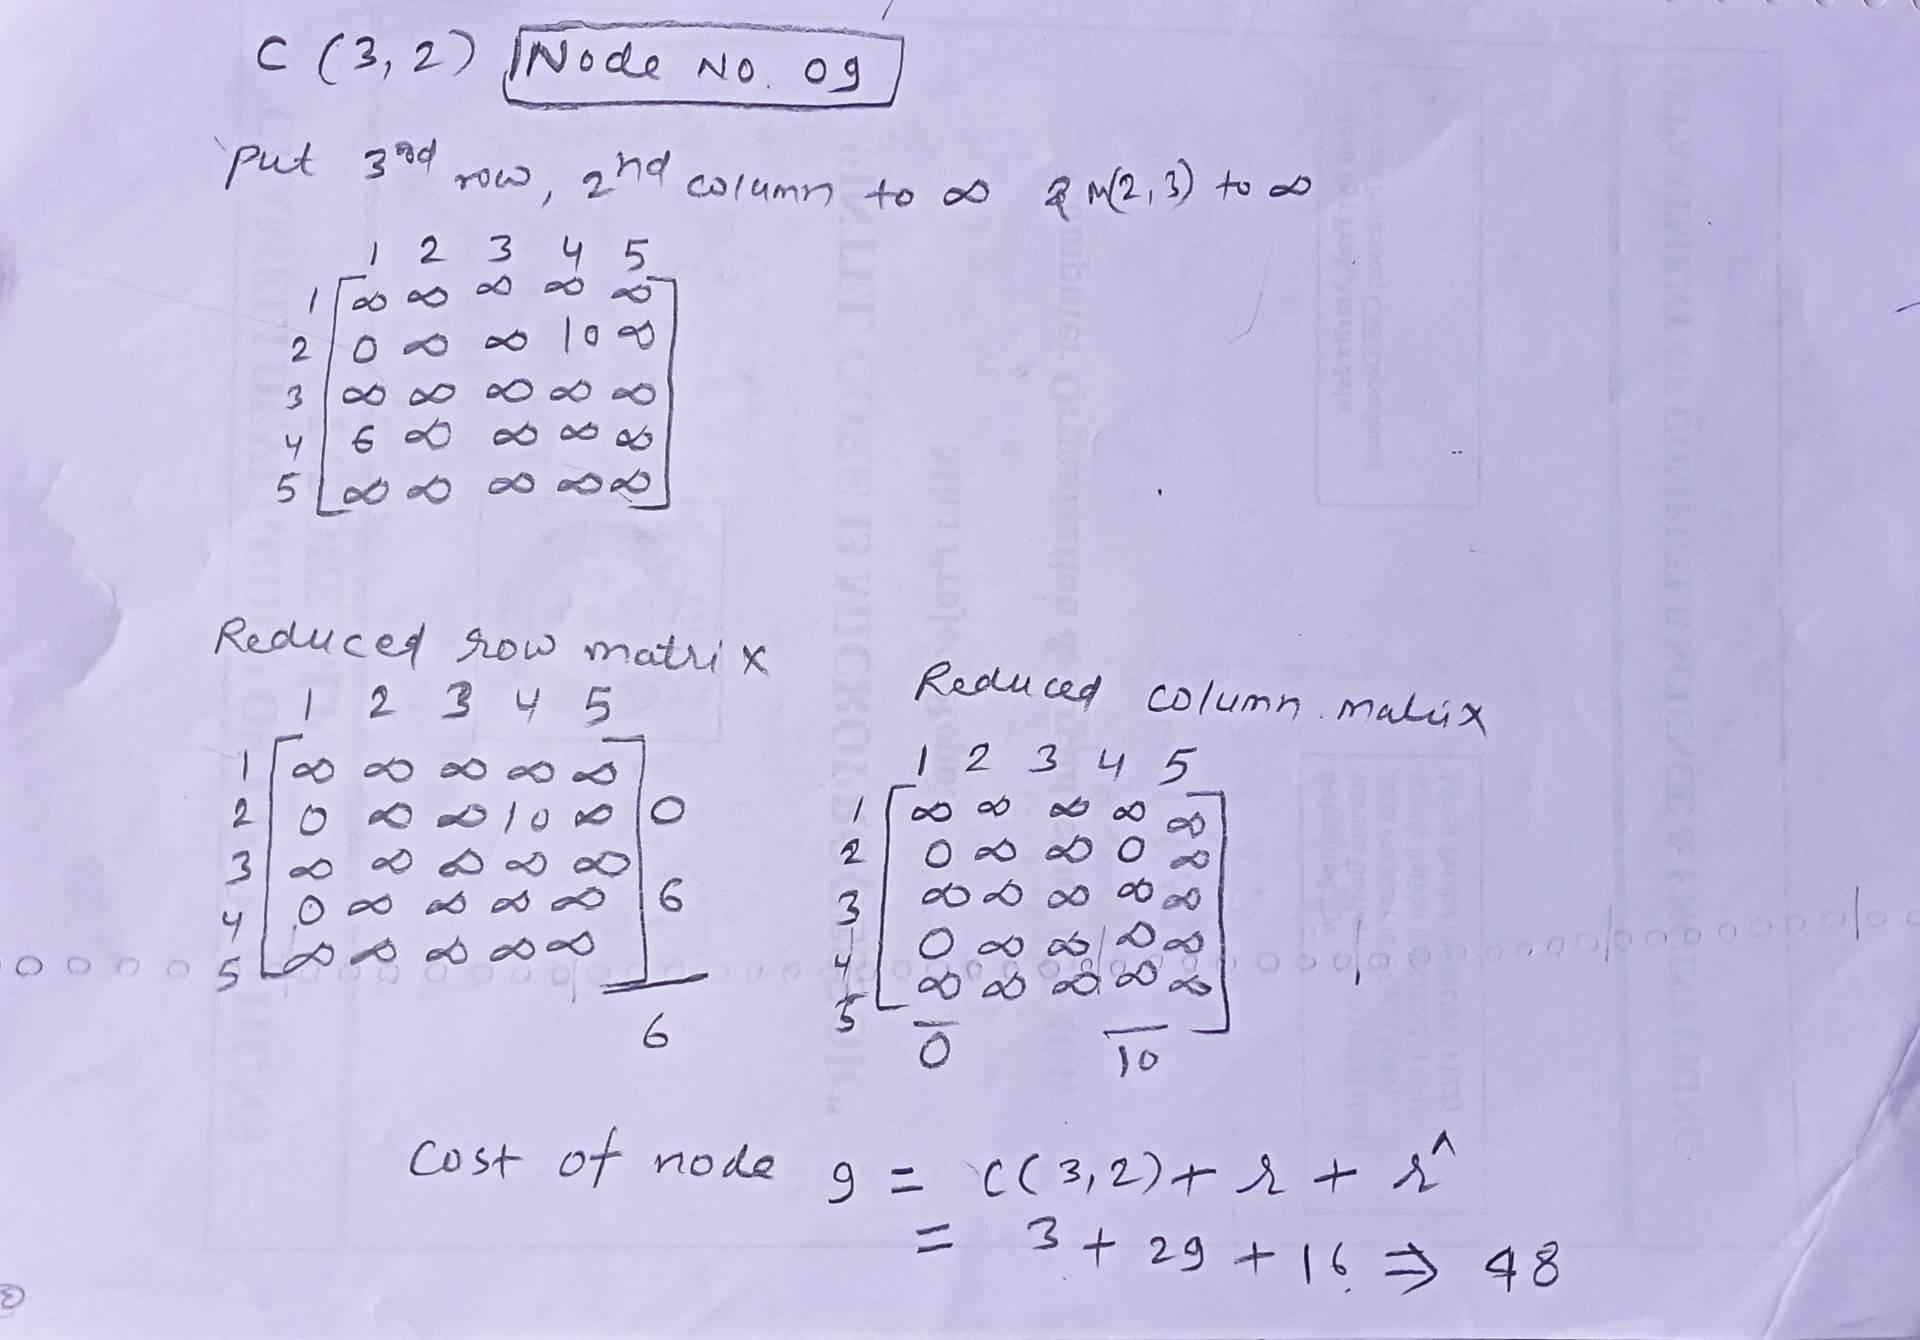 C (3,2) Node No. 09
Put 3rd row, 2nd column to ∞ & M(2,3) to ∞
1 2 3 4 5
1 ∞ ∞ ∞ ∞ ∞
2 0 ∞ ∞ 10 ∞
3 ∞ ∞ ∞ ∞ ∞
4 6 ∞ ∞ ∞ ∞
5 ∞ ∞ ∞ ∞ ∞
Reduced row matrix
1 2 3 4 5
1 ∞ ∞ ∞ ∞ ∞
2 0 ∞ ∞ 10 ∞ 0
3 ∞ ∞ ∞ ∞ ∞
4 0 ∞ ∞ ∞ ∞ 6
5 ∞ ∞ ∞ ∞ ∞
6
Reduced column matrix
1 2 3 4 5
1 ∞ ∞ ∞ ∞ ∞
2 0 ∞ ∞ 0 ∞
3 ∞ ∞ ∞ ∞ ∞
4 0 ∞ ∞ ∞ ∞
5 ∞ ∞ ∞ ∞ ∞
0 10
Cost of node 9 = C(3,2) + r + r^
= 3 + 29 + 16 ⇒ 48